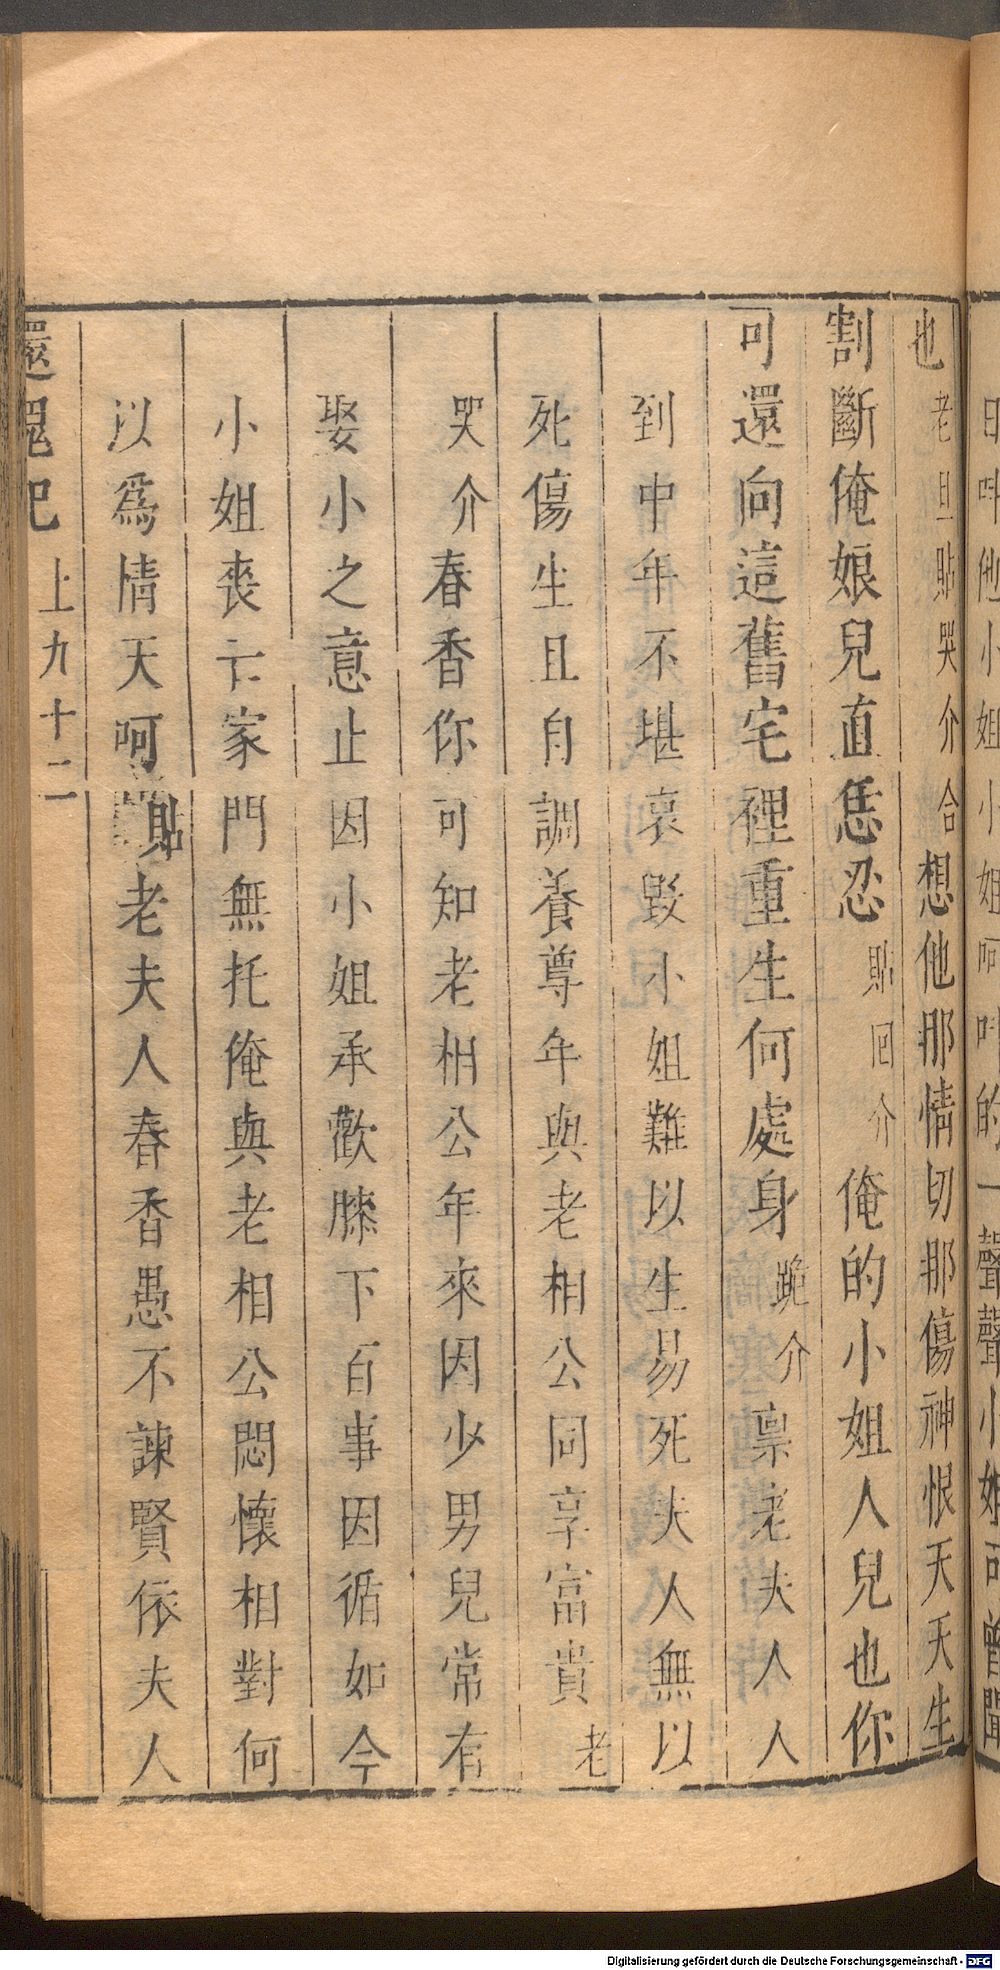 日叫他小姐小姐呵叫的一聲聲小姐可曾聞
也老旦貼哭介合想他那情切那傷神恨天天生
割斷俺娘兒直恁忍貼回介俺的小姐人兒也你
可還向這舊宅裡重生何處身跪介禀老夫人人
到中年不堪哀毀小姐難以生易死夫人無以
死傷生且自調養尊年與老相公同享富貴老
哭介春香你可知老相公年來因少男兒常有
娶小之意止因小姐承歡膝下百事因循如今
小姐喪亡家門無托俺與老相公悶懷相對何
以為情天呵貼老夫人春香愚不諫賢依夫人
還魂記 上九十二
Digitalisierung gefördert durch die Deutsche Forschungsgemeinschaft - DFG